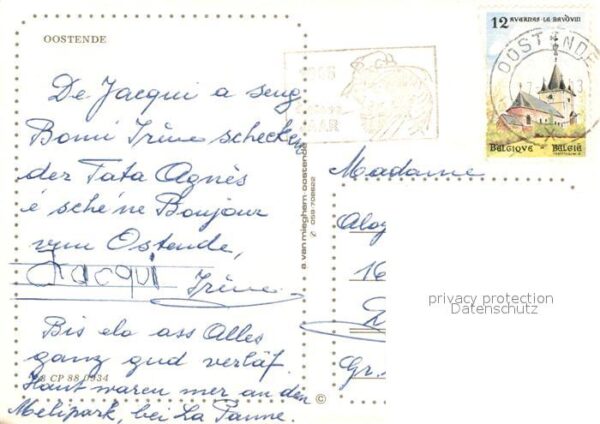 OOSTENDE
De Jacqui a seng
Bomi Irène schecken
der Tata Agnès
é schéne Bonjour
vum Ostende,
Jacqui Irène
Bis elo ass Alles
ganz gud verläf.
Haut waren mer an den
Melipark, bei La Panne.
CP 88 0934
©
a. van mieghem oostende
059-708622
12 AVERNAS-LE-BAUDUIN
BELGIQUE - BELGIË
OOSTENDE
Madame
Aloy
16
Gr.
privacy protection
Datenschutz